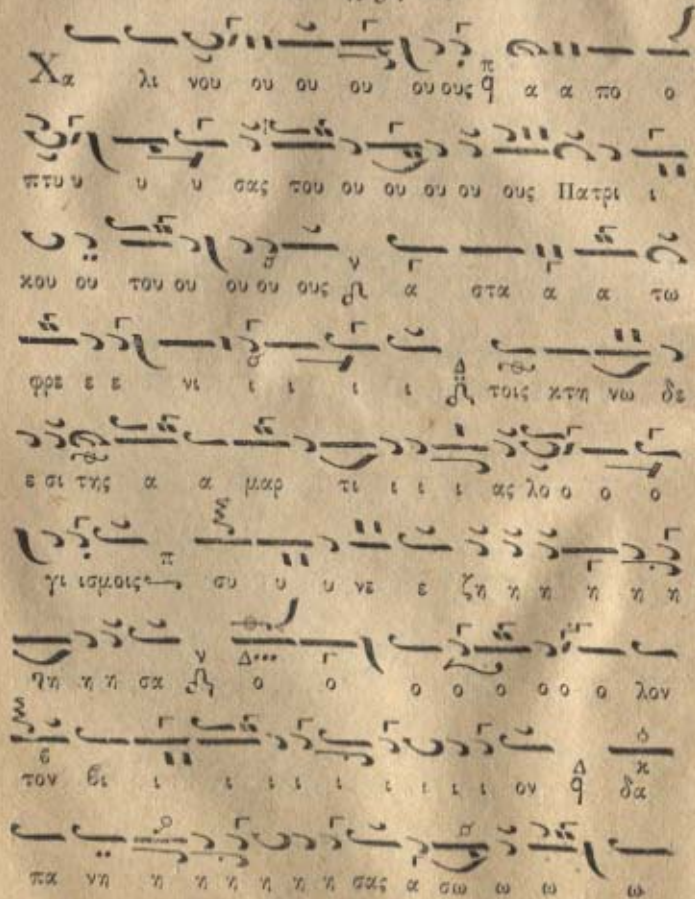 Χα λι νου ου ου ου ου ους π q α α πο ο
πτυ υ υ υ σας του ου ου ου ου ους Πατρι ι
κου ου του ου ου ου ους ν α στα α α τω
φρε ε ε νι ι ι ι ι Δ τοις κτη νω δε
ε σι της α α μαρ τι ι ι ι ας λο ο ο ο
γι ισμοις π συ υ υ νε ε ζη η η η η η
ζη η η σα ν Δ ο ο ο ο ο ο ο ο λον
τον βι ι ι ι ι ι ι ι ι ι ον Δ q δα
πα νη η η η η η η σας α σω ω ω ω